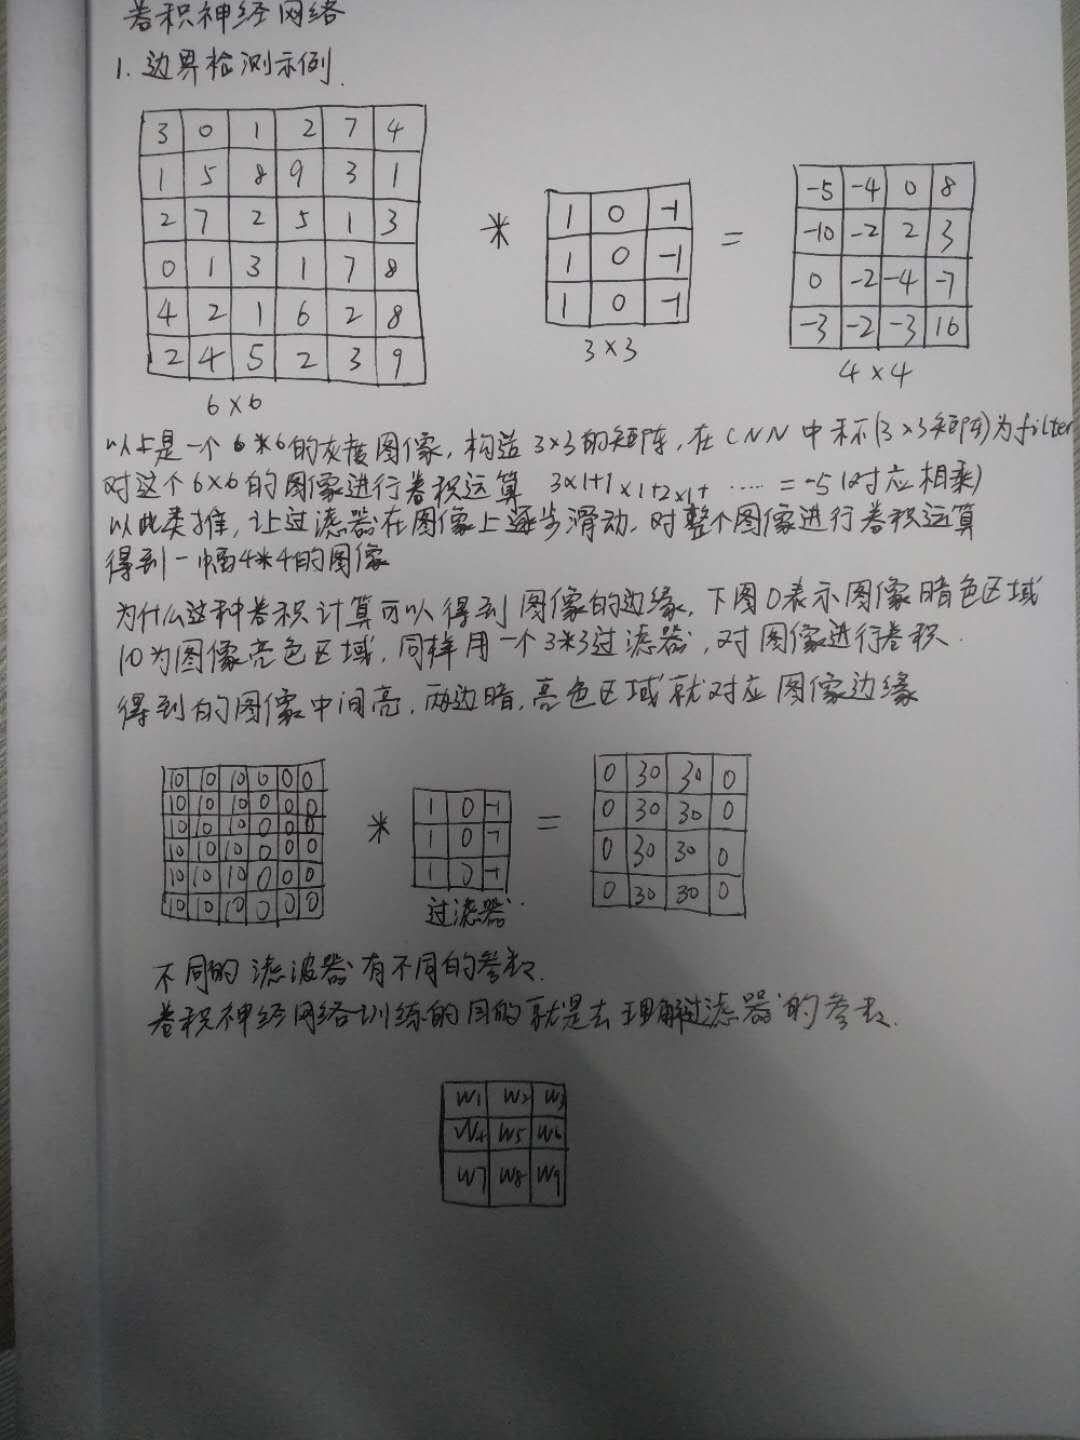 卷积神经网络
1. 边界检测示例.
3 0 1 2 7 4
1 5 8 9 3 1
2 7 2 5 1 3
0 1 3 1 7 8
4 2 1 6 2 8
2 4 5 2 3 9
6×6
*
1 0 -1
1 0 -1
1 0 -1
3×3
=
-5 -4 0 8
-10 -2 2 3
0 -2 -4 -7
-3 -2 -3 16
4×4
以上是一个6*6的灰度图像,构造3×3的矩阵,在CNN中称(3×3矩阵)为filter
对这个6×6的图像进行卷积运算 3×1+1×1+2×1+ ····· = -5(对应相乘)
以此类推,让过滤器在图像上逐步滑动,对整个图像进行卷积运算
得到一幅4*4的图像
为什么这种卷积计算可以得到图像的边缘,下图0表示图像暗色区域
10为图像亮色区域,同样用一个3*3过滤器,对图像进行卷积.
得到的图像中间亮,两边暗,亮色区域就对应图像边缘
10 10 10 0 0 0
10 10 10 0 0 0
10 10 10 0 0 0
10 10 10 0 0 0
10 10 10 0 0 0
10 10 10 0 0 0
*
1 0 -1
1 0 -1
1 0 -1
过滤器
=
0 30 30 0
0 30 30 0
0 30 30 0
0 30 30 0
不同的滤波器有不同的参数.
卷积神经网络训练的目的就是去理解过滤器的参数.
W1 W2 W3
W4 W5 W6
W7 W8 W9